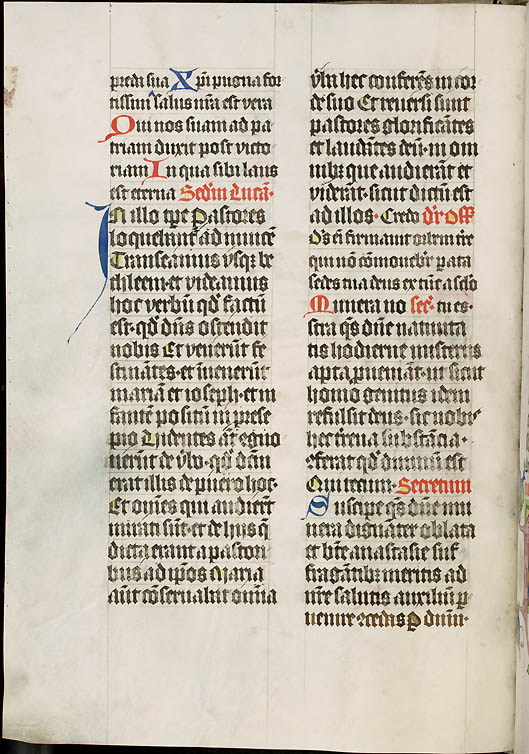 preda sua Xpi pugna for
tissim salus nra est vera
Qui nos suam ad pa
triam duxit post victo
riam In qua sibi laus
est eterna Scdm Lucam.
In illo tpe Pastores
loquebant ad inuice
Transeamus vsqz be
thleem et videamus
hoc verbu qd factu
est. qd dns ostendit
nobis Et veneru̅t fe
stina̅tes. et i̅uenerūt
maria̅ et ioseph. et in
fante̅ positu̅ in prese
pio Videntes aut cogno
uerūt de v̅bo. qd dictū
erat illis de puero hoc.
Et om̅es qui audiert
mirati su̅t. et de hijs q̅
dicta erant a pastori
bus ad ip̅os Maria
aūt co̅seruabat omnia
v̅ba hec conferēs in cor
de suo Et reuersi sunt
pastores glorificātes
et laudātes deū in om
nibz que audierāt et
viderāt. sicut dictū est
ad illos. Credo Off
Ds em̅ firmauit orbem tr̅e
qui no̅ co̅mouebit̅ parata
sedes tua deus ex tūc a sclo
Munera no sec̅. tu es.
stra qs dn̅e natiuita
tis hodierne misterijs
apta proueniāt. ut sicut
homo genitus idem
refulsit deus. sic nobis
hec terrena substācia.
co̅ferat qd diuinū est
Qui tecum. Secretum
Suscipe qs dn̅e mu
nera dignāter oblata
et bt̅e anastasie suf
fragātibz meritis ad
nr̅e salutis auxiliū p
uenire co̅cedas P dnm.